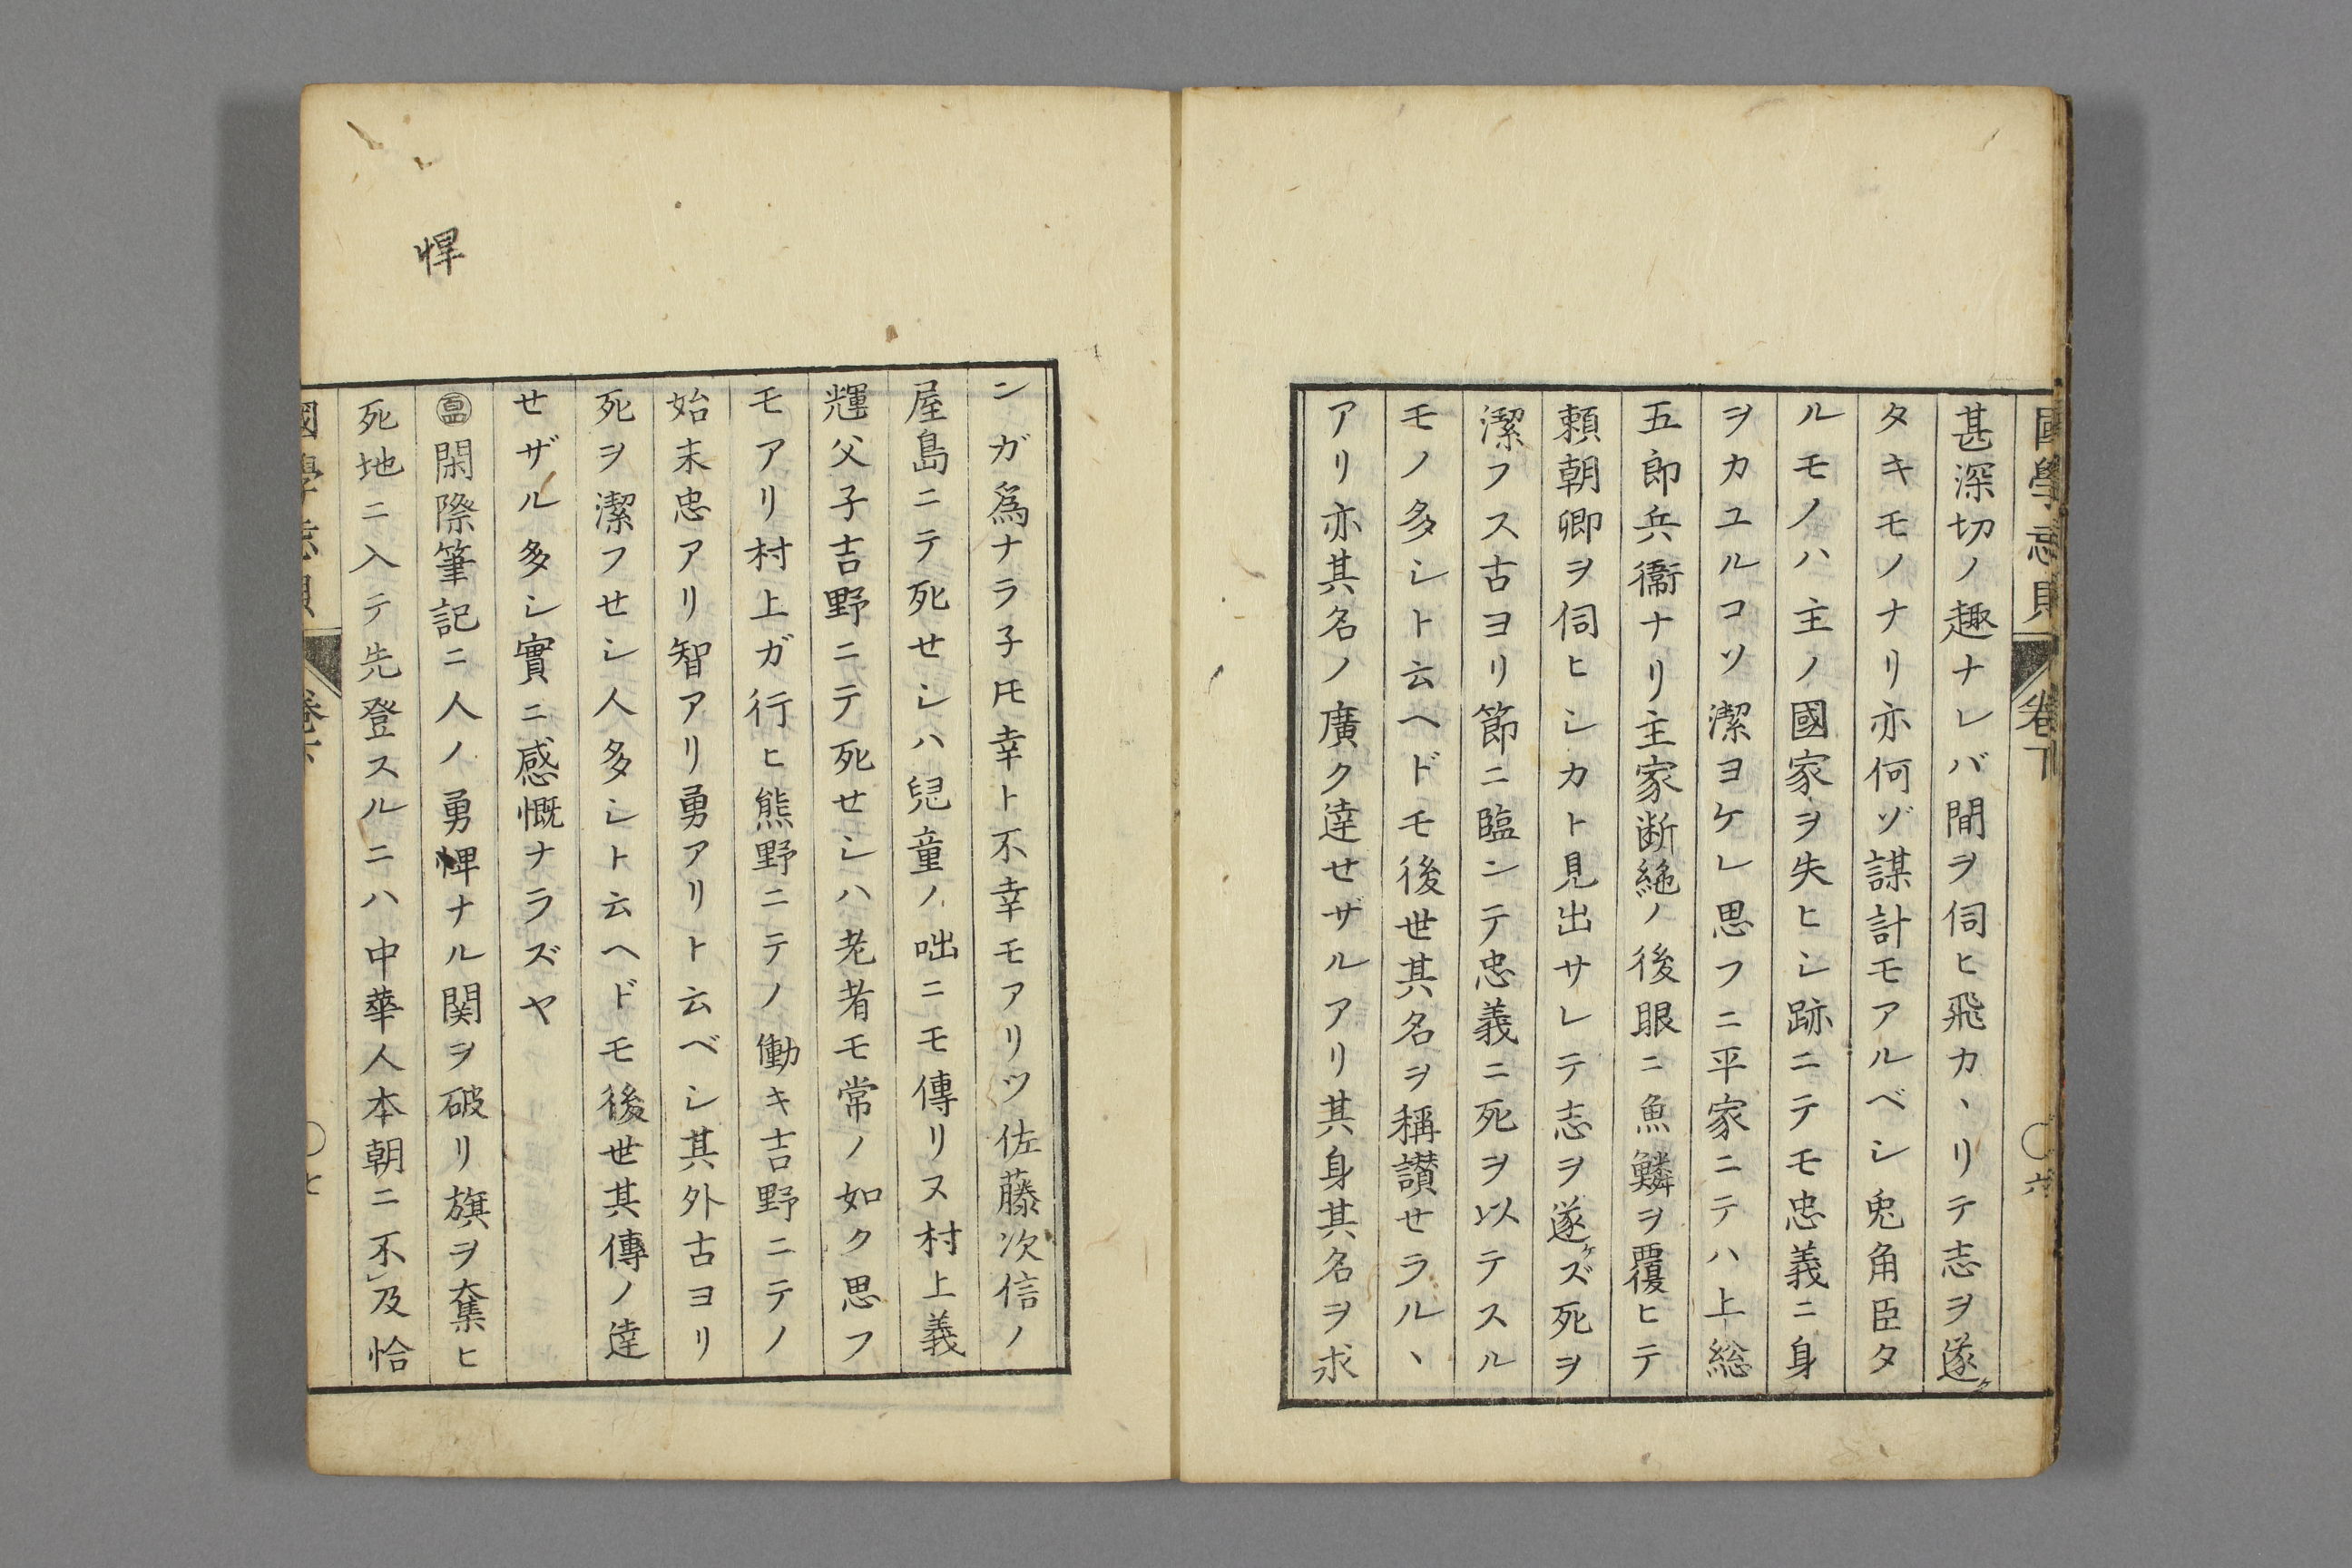 國學忘貝 卷下 〇六
甚深切ノ趣ナレバ間ヲ伺ヒ飛カヽリテ志ヲ遂ケ
タキモノナリ亦何ゾ謀計モアルベシ兎角臣タ
ルモノハ主ノ國家ヲ失ヒシ跡ニテモ忠義ニ身
ヲカユルコソ潔ヨケレ思フニ平家ニテハ上総
五郎兵衞ナリ主家断絶ノ後眼ニ魚鱗ヲ覆ヒテ
頼朝卿ヲ伺ヒシカト見出サレテ志ヲ遂ケズ死ヲ
潔フス古ヨリ節ニ臨ンテ忠義ニ死ヲ以テスル
モノ多シト云ヘドモ後世其名ヲ稱讃セラルヽ
アリ亦其名ノ廣ク達セザルアリ其身其名ヲ求
ンガ爲ナラ子𪜈幸ト不幸モアリツ佐藤次信ノ
屋島ニテ死せシハ兒童ノ咄ニモ傳リヌ村上義
輝父子吉野ニテ死せシハ老者モ常ノ如ク思フ
モアリ村上ガ行ヒ熊野ニテノ働キ吉野ニテノ
始末忠アリ智アリ勇アリト云ベシ其外古ヨリ
死ヲ潔フせシ人多シト云ヘドモ後世其傳ノ達
せザル多シ實ニ感慨ナラズヤ
閑際筆記ニ人ノ勇悍ナル関ヲ破リ旗ヲ奪ヒ
死地ニ入テ先登スルニハ中華人本朝ニ不レ及恰
悍
卷下 〇七